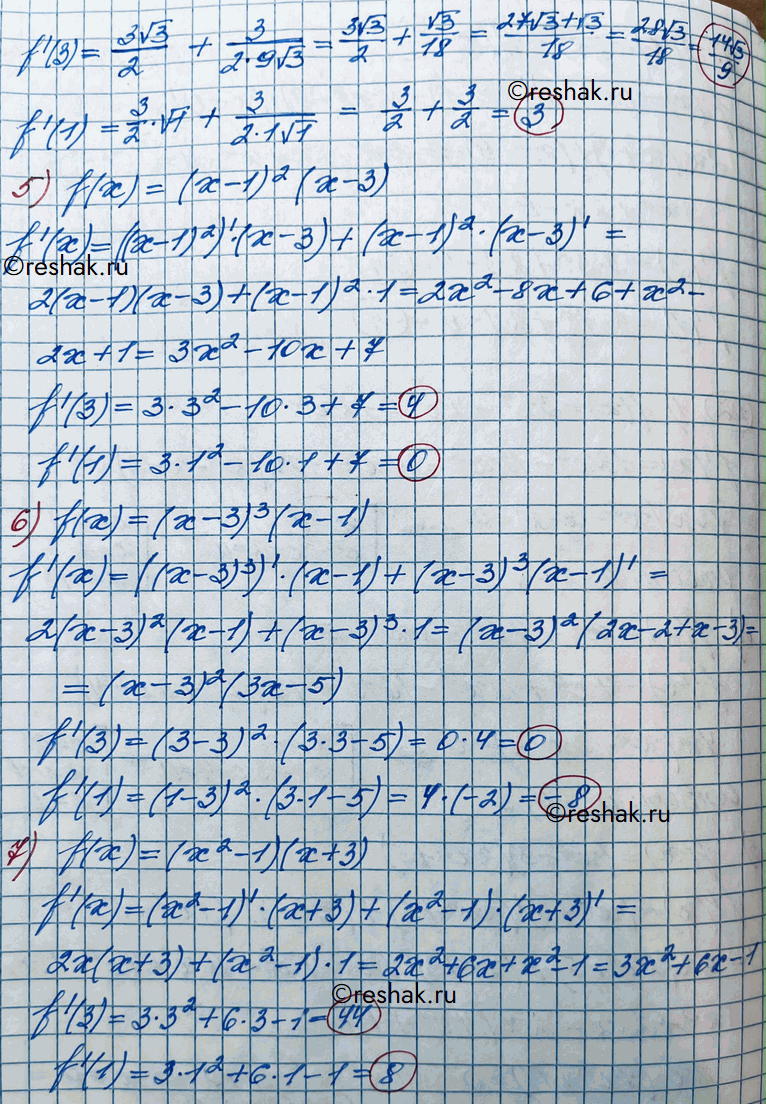 f'(3) = 3√3/2 + 3/(2·9√3) = 3√3/2 + √3/18 = (27√3+√3)/18 = 28√3/18 = 14√3/9
©reshak.ru
f'(1) = 3/2·√1 + 3/(2·1√1) = 3/2 + 3/2 = 3
5) f(x) = (x-1)² (x-3)
f'(x) = ((x-1)²)'·(x-3) + (x-1)²·(x-3)' =
©reshak.ru
2(x-1)(x-3) + (x-1)²·1 = 2x²-8x+6+x²-
2x+1 = 3x²-10x+7
f'(3) = 3·3²-10·3+7 = 4
f'(1) = 3·1²-10·1+7 = 0
6) f(x) = (x-3)³(x-1)
f'(x) = ((x-3)³)'·(x-1) + (x-3)³(x-1)' =
2(x-3)²(x-1) + (x-3)³·1 = (x-3)²(2x-2+x-3) =
= (x-3)²(3x-5)
f'(3) = (3-3)²·(3·3-5) = 0·4 = 0
f'(1) = (1-3)²·(3·1-5) = 4·(-2) = -8
©reshak.ru
7) f(x) = (x²-1)(x+3)
f'(x) = (x²-1)'·(x+3) + (x²-1)·(x+3)' =
2x(x+3) + (x²-1)·1 = 2x²+6x+x²-1 = 3x²+6x-1
©reshak.ru
f'(3) = 3·3²+6·3-1 = 44
f'(1) = 3·1²+6·1-1 = 8